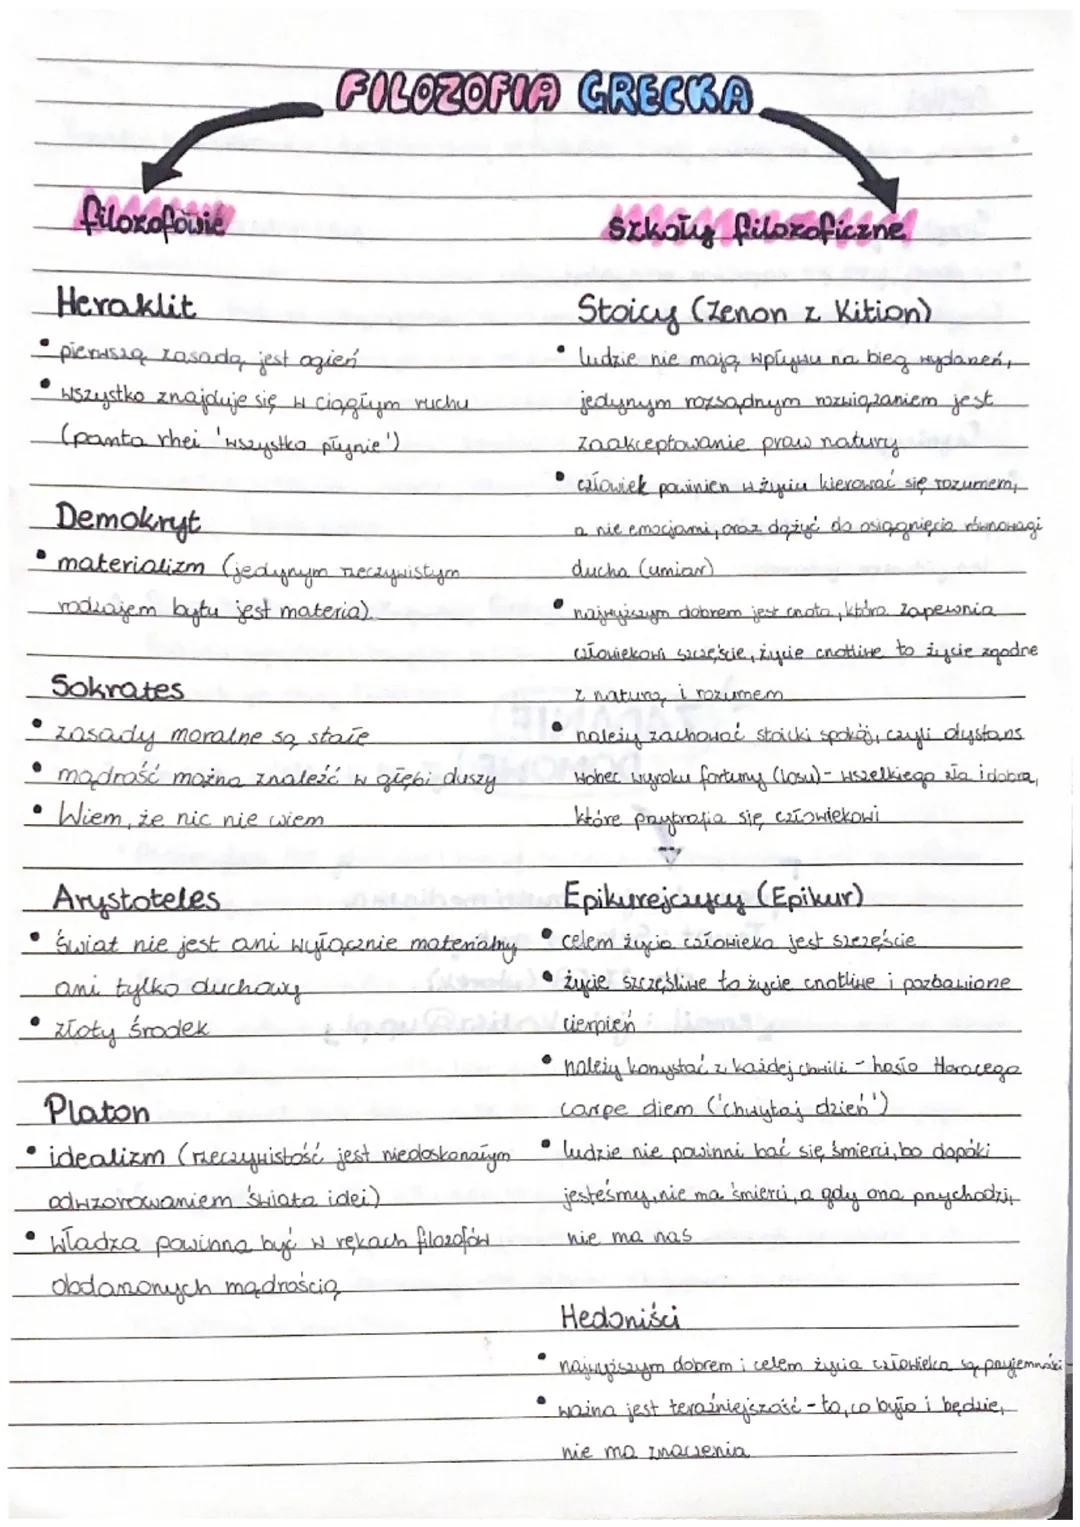 FILOZOFIA GRECKA
filozofowie
Heraklit
• pierwszą zasadą jest ogień
• wszystko znajduje się w ciągłym ruchu
(panta rhei 'wszystko płynie')
Demokryt
• materializm (jedynym rzeczywistym
rodzajem bytu jest materia)
Sokrates
• zasady moralne są stałe
• mądrość można znaleźć w głębi duszy
• Wiem, że nic nie wiem
Arystoteles
• świat nie jest ani wyłącznie materialny,
ani tylko duchowy
• złoty środek
Platon
• idealizm (rzeczywistość jest niedoskonałym
odwzorowaniem świata idei)
• władza powinna być w rękach filozofów
obdarzonych mądrością
szkoły filozoficzne
Stoicy (Zenon z Kition)
• ludzie nie mają wpływu na bieg wydarzeń,
jedynym rozsądnym rozwiązaniem jest
zaakceptowanie praw natury
• człowiek powinien w życiu kierować się rozumem,
a nie emocjami, oraz dążyć do osiągnięcia równowagi
ducha (umiar)
• najwyższym dobrem jest cnota, która zapewnia
człowiekowi szczęście, życie cnotliwe to życie zgodne
z naturą i rozumem
• należy zachować stoicki spokój, czyli dystans
wobec wyroku fortuny (losu) - wszelkiego zła i dobra,
które przytrafia się człowiekowi
Epikurejczycy (Epikur)
• celem życia człowieka jest szczęście
• życie szczęśliwe to życie cnotliwe i pozbawione
cierpień
• należy korzystać z każdej chwili - hasło Horacego
carpe diem ('chwytaj dzień')
• ludzie nie powinni bać się śmierci, bo dopóki
jesteśmy, nie ma śmierci, a gdy ona przychodzi,
nie ma nas
Hedoniści
• najwyższym dobrem i celem życia człowieka są przyjemności
• ważna jest teraźniejszość - to, co było i będzie,
nie ma znaczenia